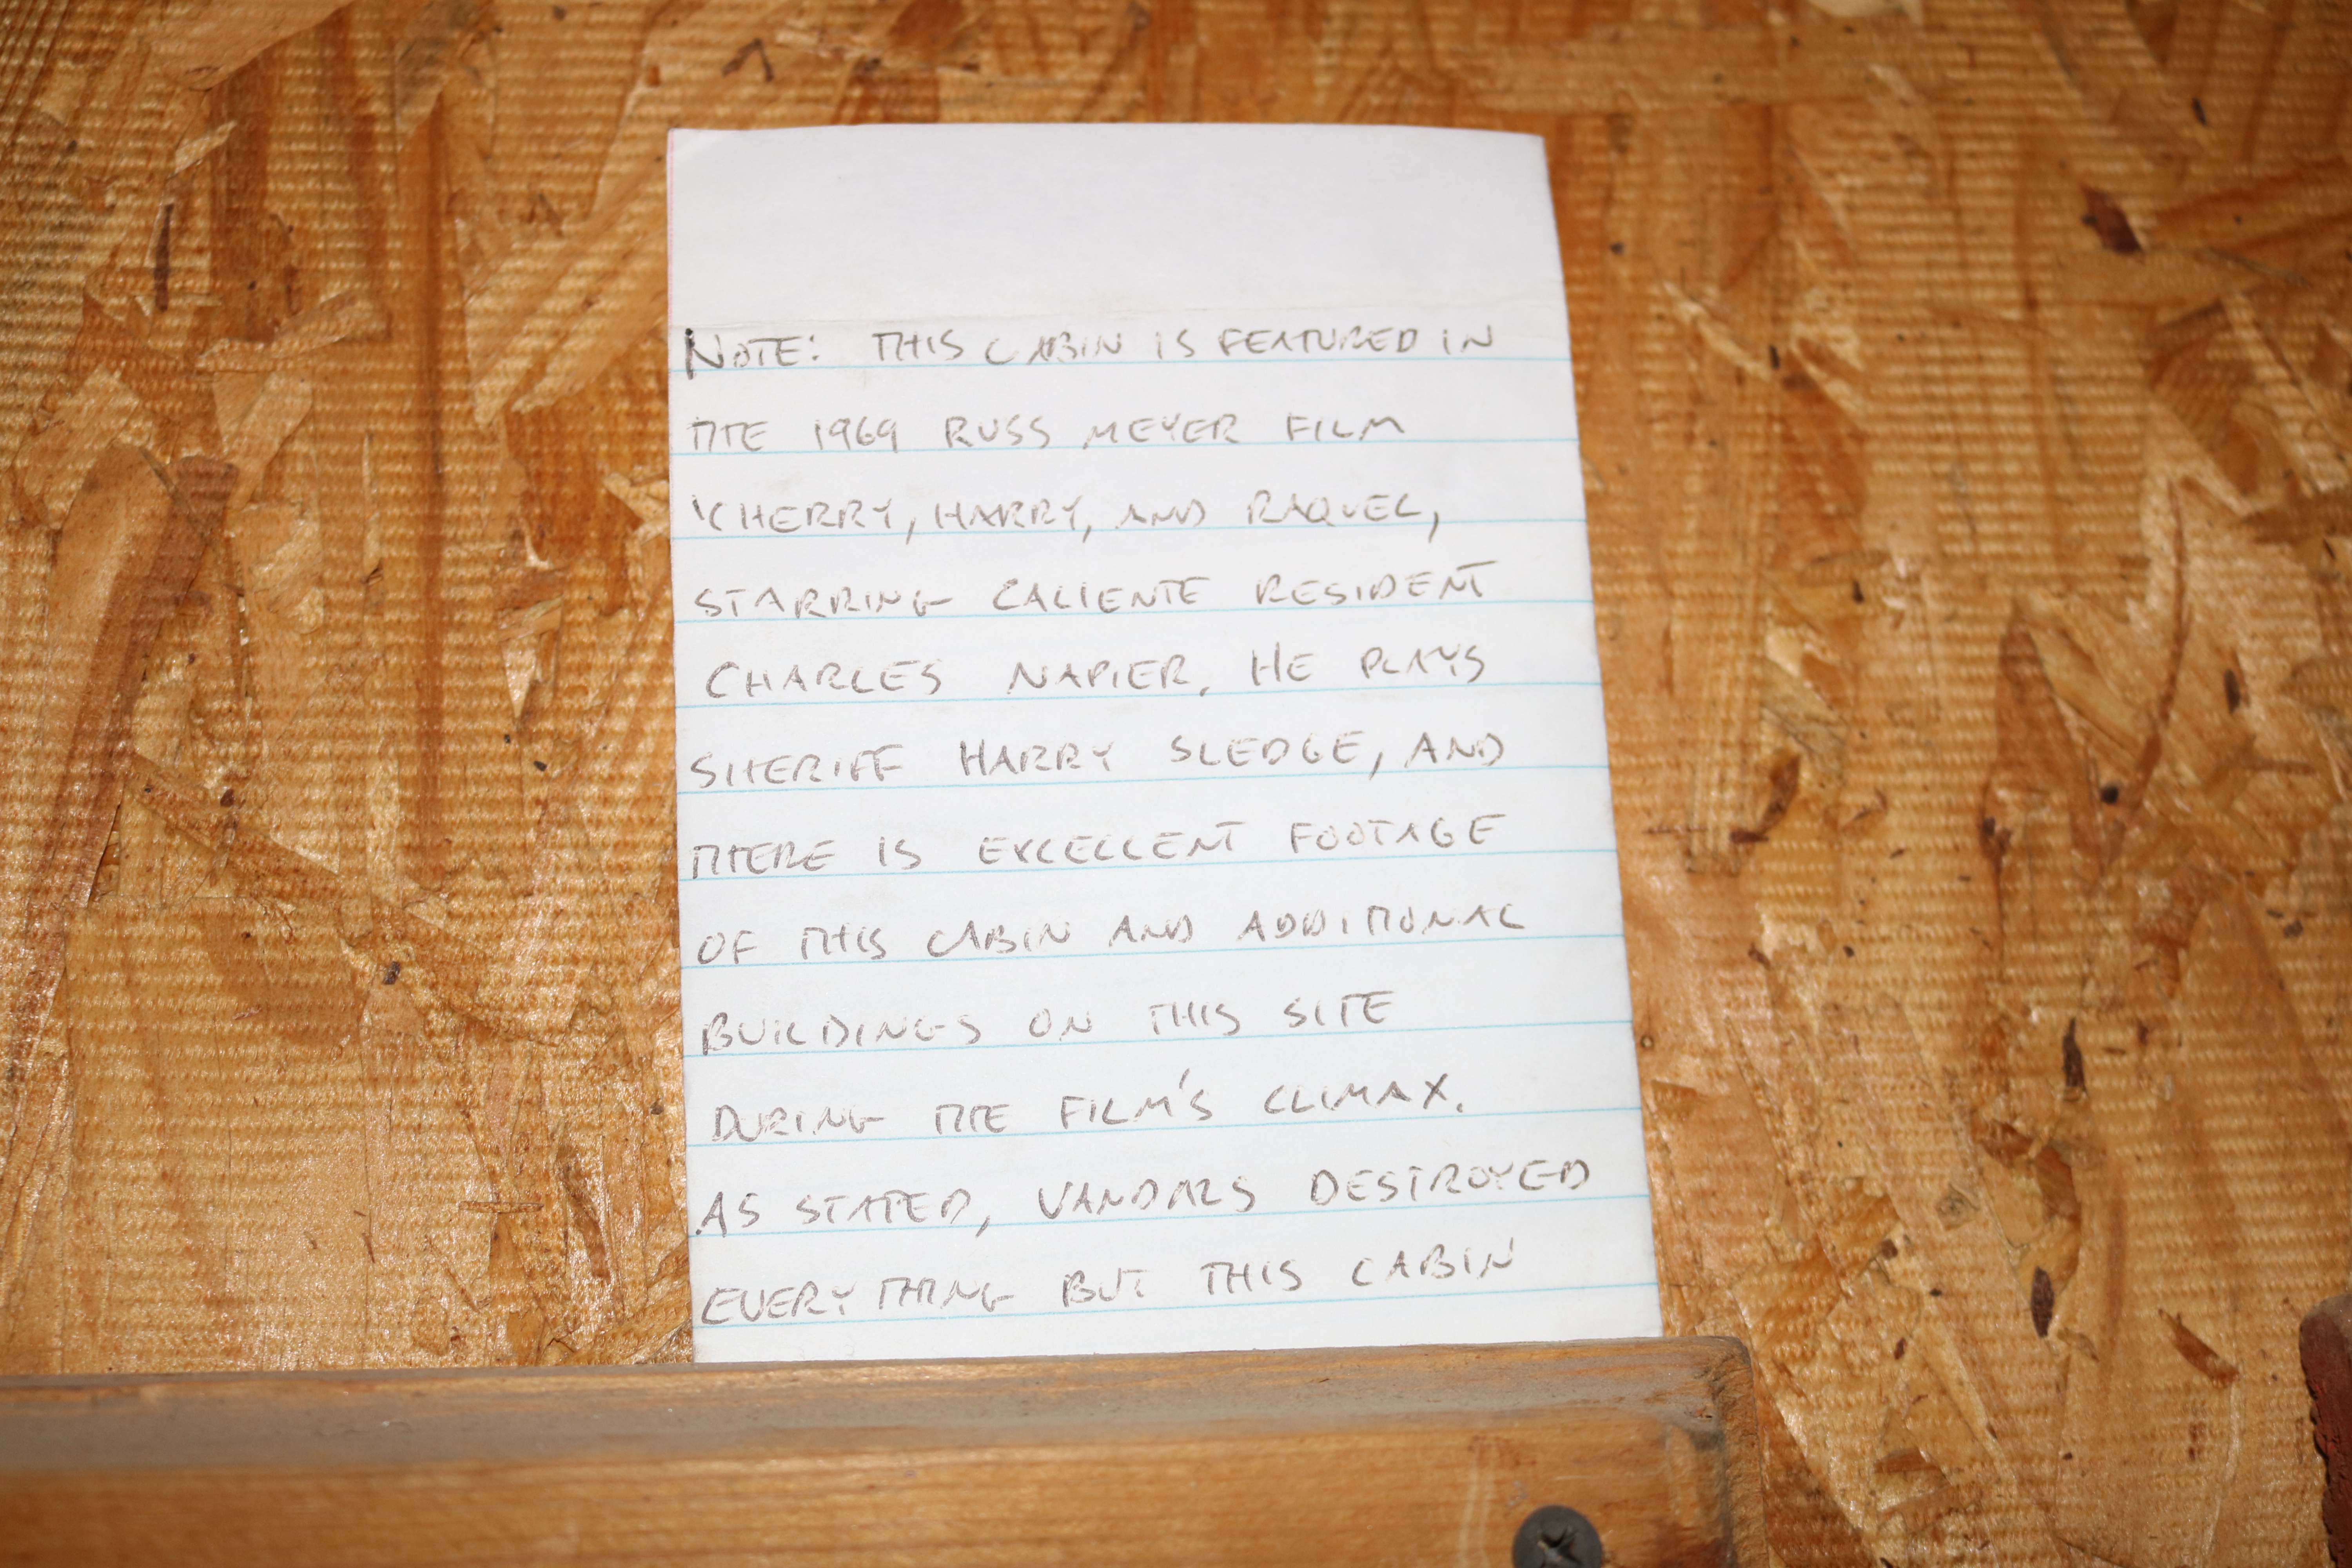 NOTE: THIS CABIN IS FEATURED IN
THE 1969 RUSS MEYER FILM
'CHERRY, HARRY, AND RAQUEL,
STARRING CALIENTE RESIDENT
CHARLES NAPIER. HE PLAYS
SHERIFF HARRY SLEDGE, AND
THERE IS EXCELLENT FOOTAGE
OF THIS CABIN AND ADDITIONAL
BUILDINGS ON THIS SITE
DURING THE FILM'S CLIMAX.
AS STATED, VANDALS DESTROYED
EVERYTHING BUT THIS CABIN